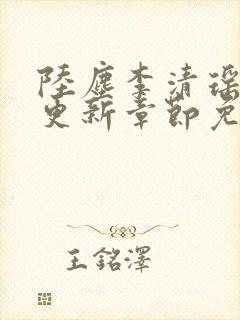 陸塵李清瑶
更新章節免
王銘澤